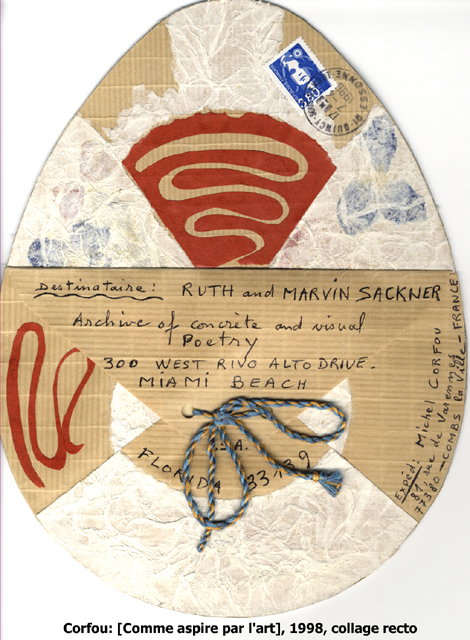 91 QUINCY-SOUS
ESSONNE
Destinataire: RUTH and MARVIN SACKNER
Archive of concrete and visual
Poetry
300 WEST RIVO ALTO DRIVE.
MIAMI BEACH
.S.A.
FLORIDA 33139
Expéd: Michel CORFOU
81, rue de Varennes
77380 - COMBS la Ville - FRANCE
Corfou: [Comme aspire par l'art], 1998, collage recto